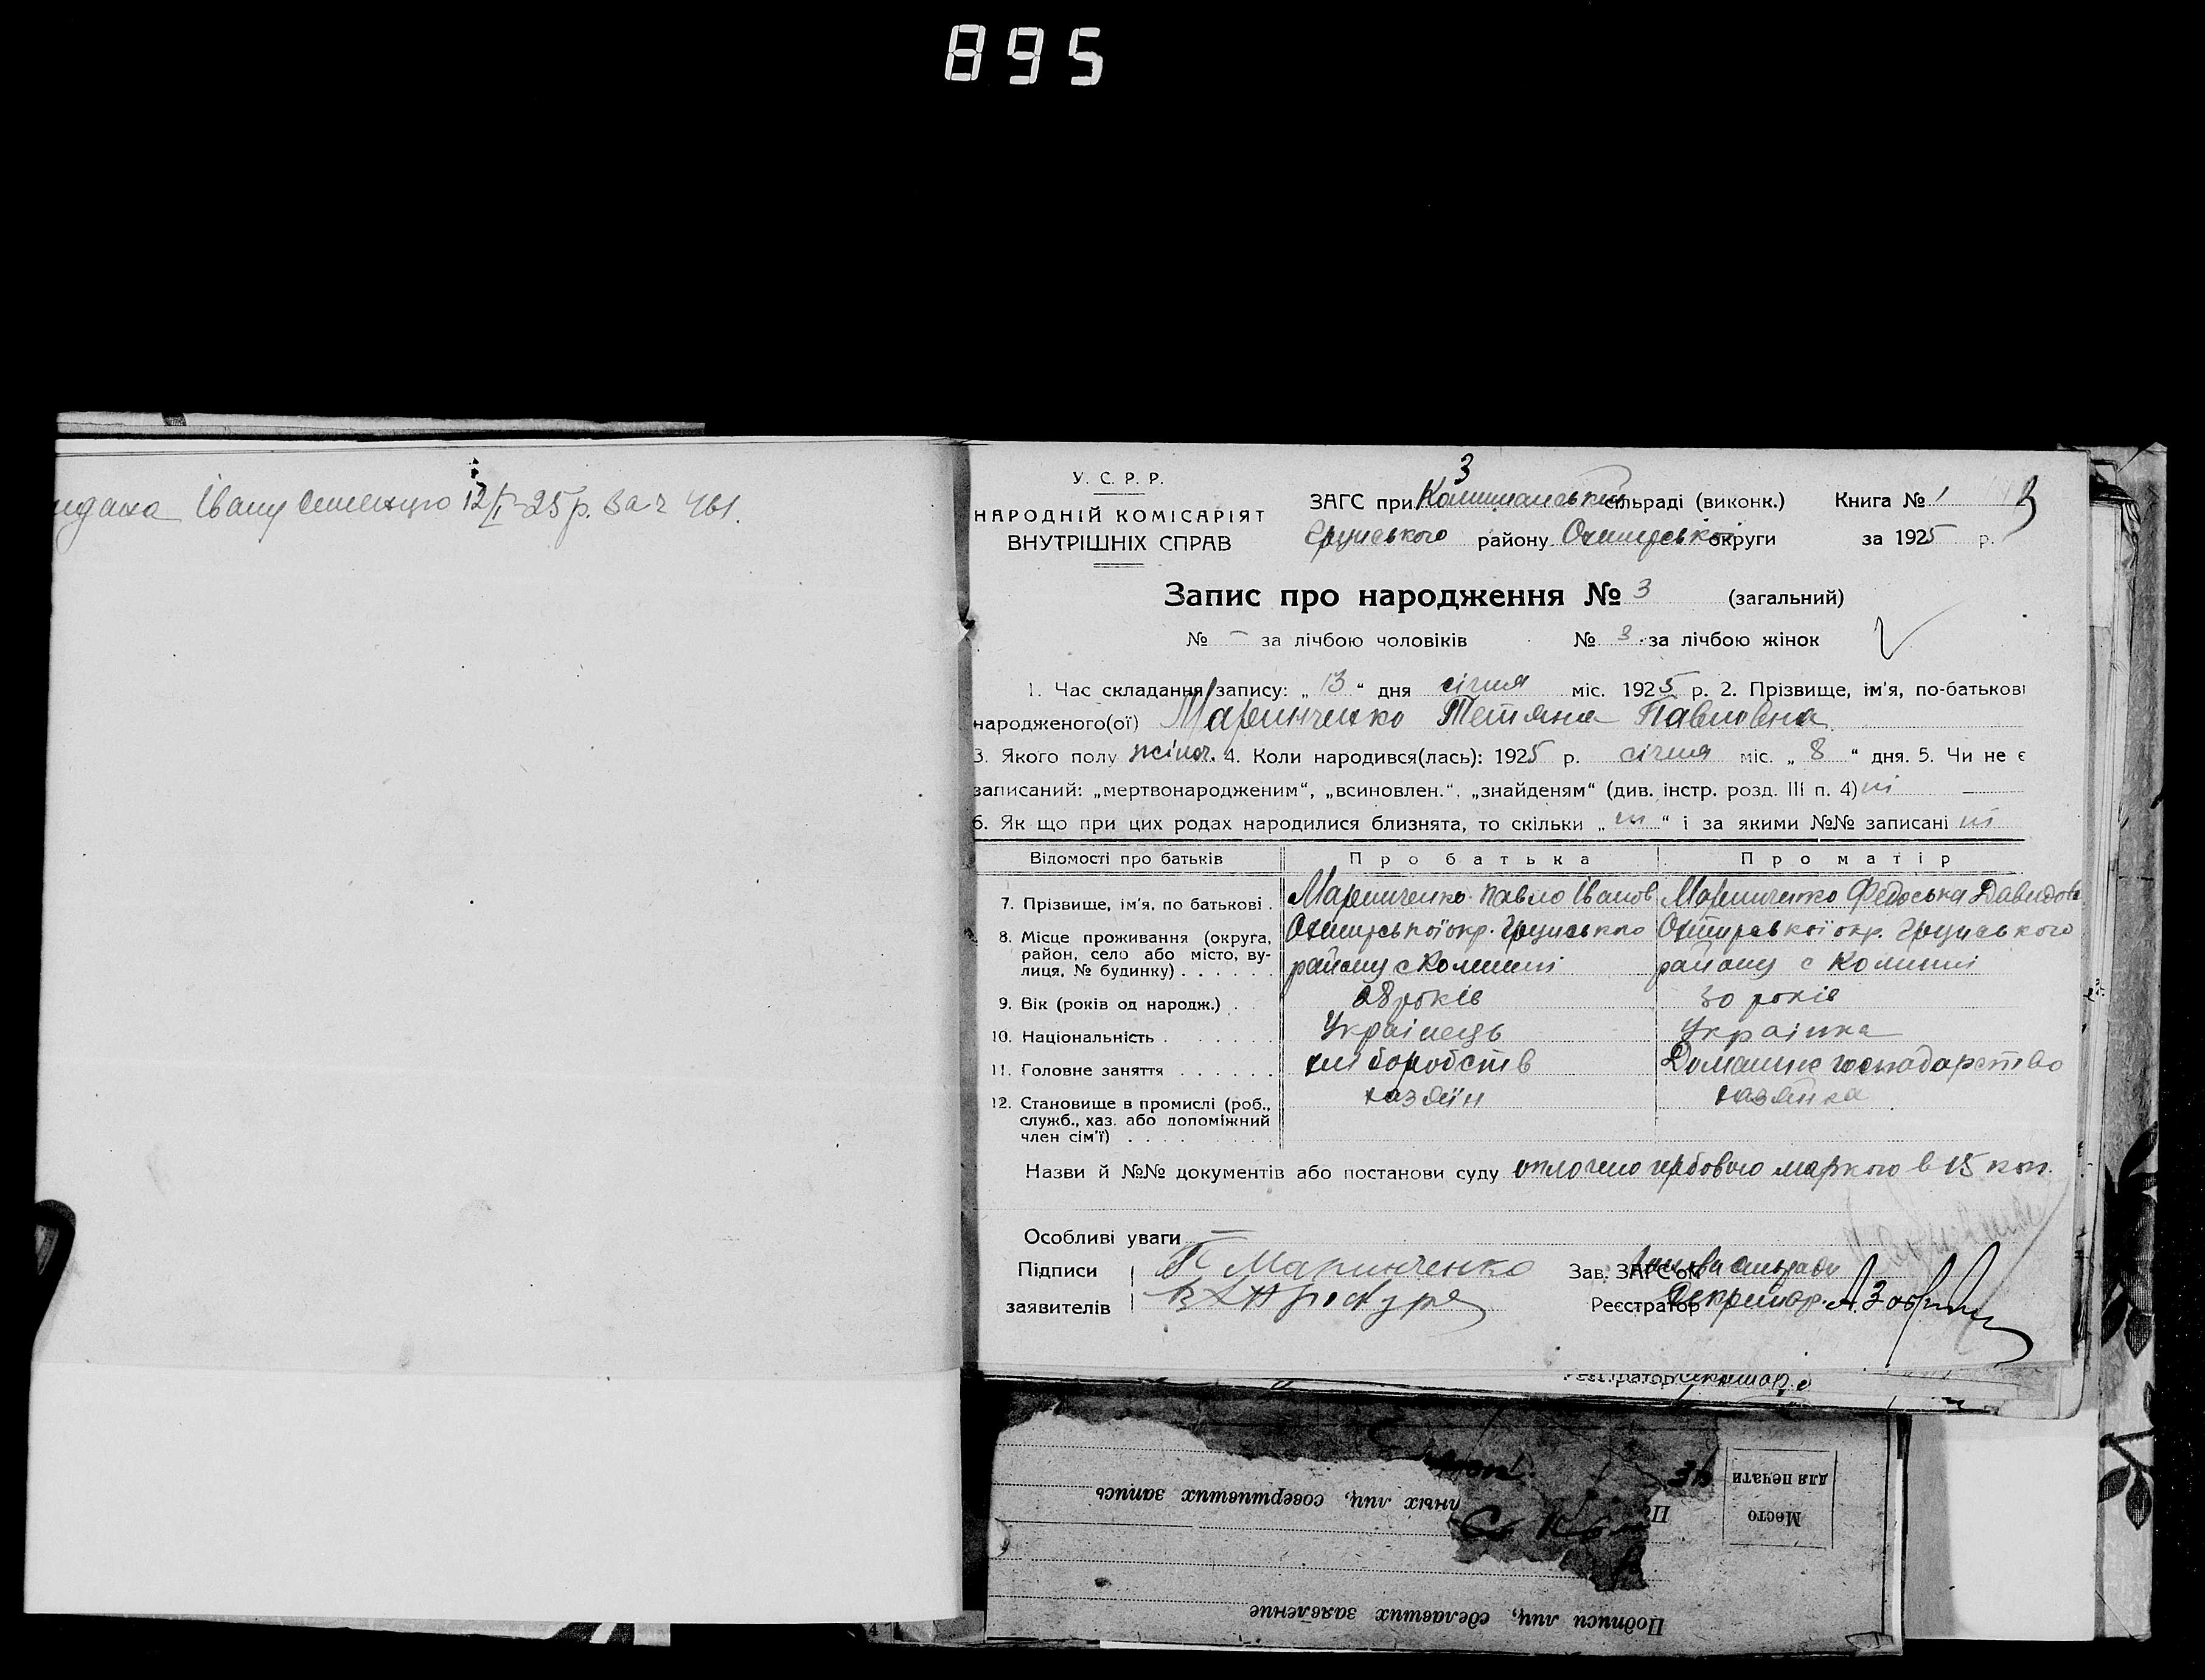 895
Івану 12/I-25 р. За № 461.
3
У. С. Р. Р.
НАРОДНІЙ КОМІСАРІЯТ
ВНУТРІШНІХ СПРАВ
ЗАГС при сільраді (виконк.) Книга № 1 3
Грунського району Охтирської округи за 1925 р.
Запис про народження № 3 (загальний)
№ – за лічбою чоловіків № 3 за лічбою жінок
1. Час складання запису: „ 13 “ дня січня міс. 1925 р. 2. Прізвище, ім'я, по-батькові
народженого(ої) Маринченко Тетяна Павловна
3. Якого полу жіноч. 4. Коли народився(лась): 1925 р. січня міс. „ 8 “ дня. 5. Чи не є
записаний: „мертвонародженим“, „всиновлен.“, „знайденям“ (див. інстр. розд. III п. 4) ні
6. Як що при цих родах народилися близнята, то скільки „ ні “ і за якими №№ записані ні
Відомості про батьків Про батька Про матір
7. Прізвище, ім'я, по батькові . Маринченко Павло Іванов Маринченко Федоська Давидовн
8. Місце проживання (округа, Охтирської окр. Грунського Охтирської окр. Грунського
район, село або місто, ву-
лиця, № будинку) . . . . . . району с Комиші району с Комиші
9. Вік (років од народж.) . 28 років 30 років
10. Національність . . . . . . Українець Українка
11. Головне заняття . . . . . . хліборобств Домашнє господарство
12. Становище в промислі (роб., хазяїн хазяйка
служб., хаз. або допоміжний
член сім'ї) . . . . . . . .
Назви й №№ документів або постанови суду оплочено гербовою маркою в 15 коп.
Особливі уваги –
Підписи П Маринченко Зав. ЗАГС'ом Голова сільради
заявителів Реєстратор Секретар. А.
Реєстратор Секретар
Место
для печати
лных лиц, совершивших запись
Подписи лиц, сделавших заявление